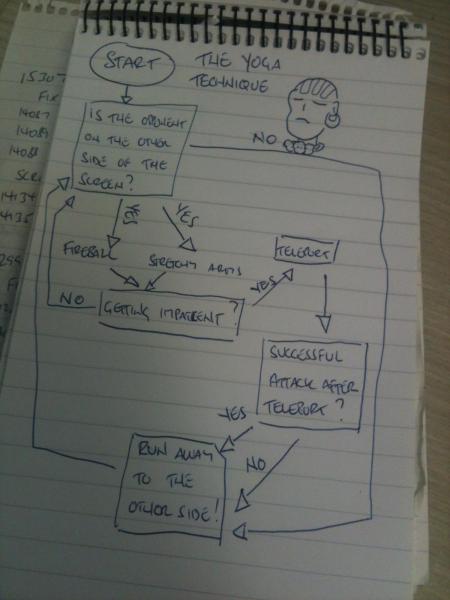 START
THE YOGA
TECHNIQUE
IS THE OPPONENT
ON THE OTHER
SIDE OF THE
SCREEN?
NO
YES
YES
FIREBALL
STRETCHY ARMS
TELEPORT
NO
GETTING IMPATIENT?
YES
SUCCESSFUL
ATTACK AFTER
TELEPORT?
YES
NO
RUN AWAY
TO THE
OTHER SIDE!
15307
FIX
14087
14089
14088
14134
4135